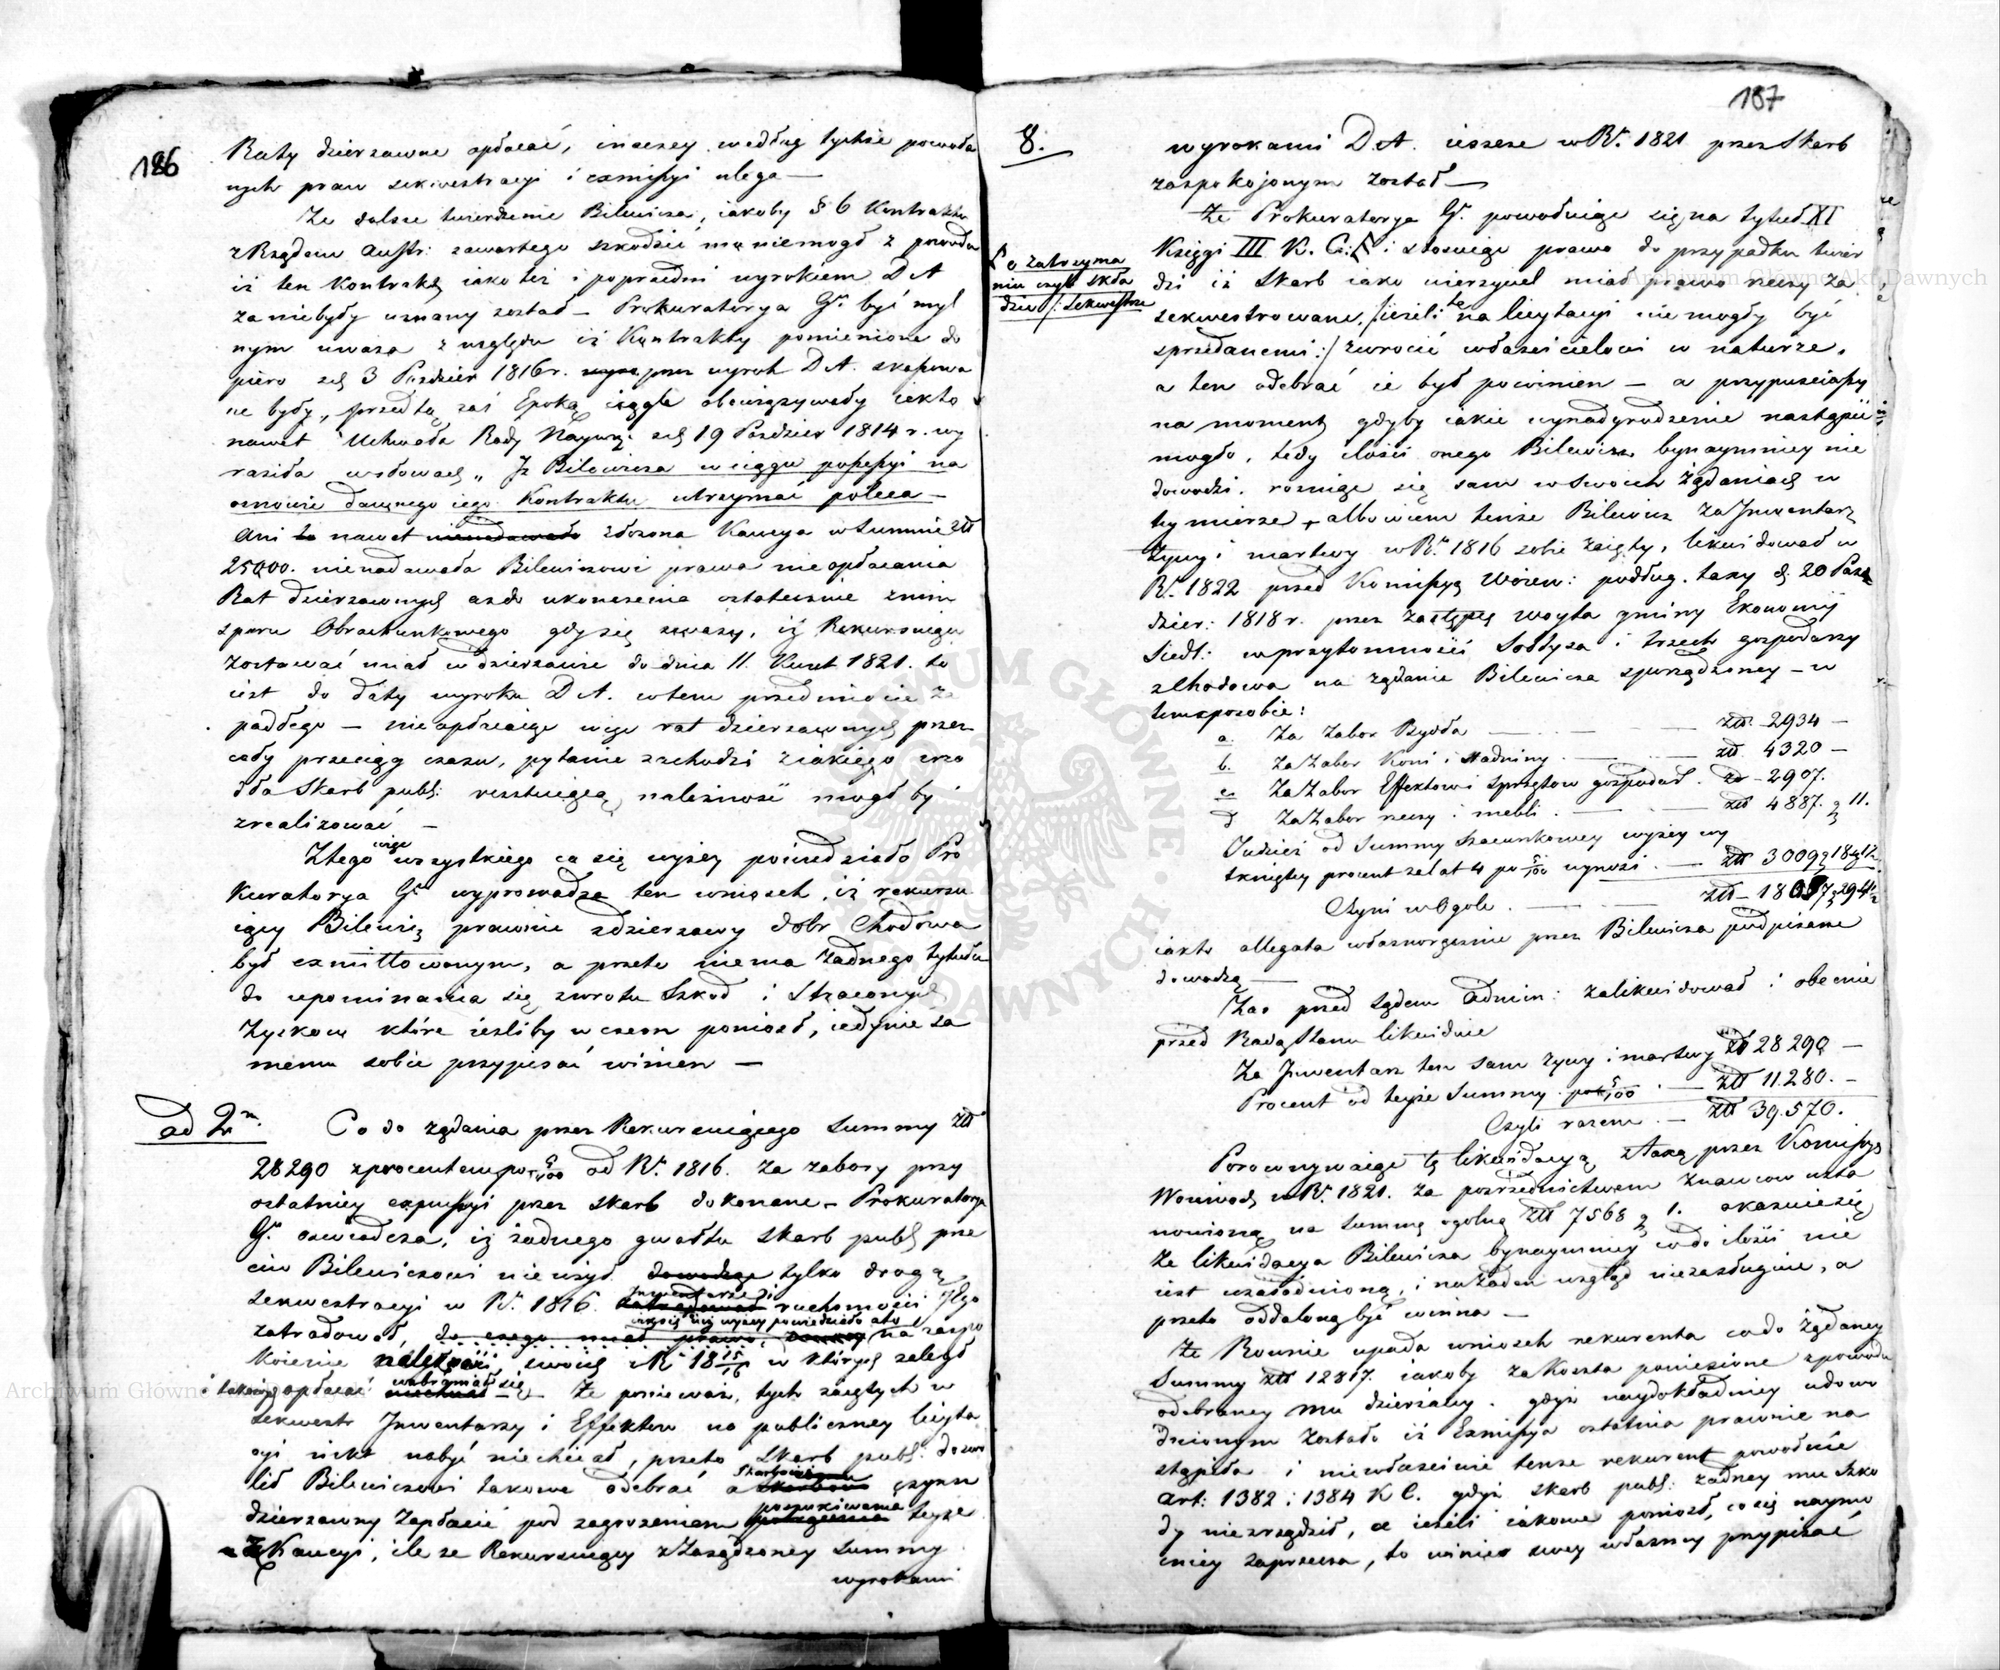 186
Raty dzierzawne opłacać, inaczey według tychże powoła
nych praw sekwestracyi i exmissyi ulega —
Ze dalsze twierdzenie Bilewicza, iakoby § 6 Kontraktu
z Rządem Austr: zawartego szkodzić mu niemógł z powodu
iż ten Kontrakt iako też i poprzedni wyrokiem D A
za niebyły uznany został — Prokuratorya Gń być myl
nym uważa z względu iż Kontrakty pomienione do
piero d. 3 Paździer 1816 r. przez wyrok D A. skassowa
ne były, przed tą zaś Epoką ciągle obowiązywały iak to
nawet Uchwała Rady Naywyż: d. 19 Paździer 1814 r. wy
raziła w słowach „ Iż Bilewicza w ciągu possessyi na
osnowie dawnego iego Kontraktu utrzymać poleca —
Ani to nawet złożona Kaucya w Summie złł
25000. nienadawała Bilewiczowi prawa nieopłacania
Rat dzierzawnych aż do ukończenia ostatecznie z nim
sporu Obrachunkowego gdy się zważy, iż Rekuruiący
zostawać miał w dzierzawie do dnia 11. Kwiet 1821. to
iest do daty wyroku D A. w tem przedmiocie za
padłego — nieopłacaiąc więc rat dzierzawnych przez
cały przeciąg czasu, pytanie zachodzi z iakiego źrzo
dła Skarb publ: resztuiącą należność mógł by
zrealizować —
Z tego więc wszystkiego co się wyżey powiedziało Pro
kuratorya Gń wyprowadza ten wniosek, iż rekuru
iący Bilewicz prawnie z dzierzawy dobr Chodowa
był exmittowanym, a przeto niema żadnego tytułu
do upominania się zwrotu Szkod i Straconych
Zyskow które ieśliby w czem poniosł, iedynie sa
memu sobie przypisać winien —
ad 2m. Co do żądania przez Rekuruiącego Summy złł
28290 z procentem po 5/100 od R. 1816. za zabory przy
ostatniey expulsyi przez Skarb dokonane — Prokuratorya
Gń oświadcza, iż żadnego gwałtu Skarb publ prze
ciw Bilewiczowi nieużył. dowodząc tylko drogą
Inwentarze i
sekwestracyi w R. 1816. ruchomości Jego
iak się iuż wyżey powiedziało a to
zatradował, do czego miał prawo, na zaspo
koienie należności, swoich z R. 18 15/16 w których zaległ
i takowych opłacać wzbraniał się — Ze ponieważ, tych zaiętych w
sekwestr Inwentarzy i Effektow na publiczney licyta
cyi nikt nabyć niechciał, przeto Skarb publ: dozwo
lił Bilewiczowi takowe odebrać a Skarbowi czynsz
dzierzawny zapłacić pod zagrożeniem poszukiwania teyże
z Kaucyi, ile że Rekuruiący z Zasądzoney Summy
wyrokami
187
8.
wyrokami D A. ieszcze w R. 1821 przez Skarb
zaspokojonym został —
Ze Prokuratorya Gń. powołuiąc się na tytuł XI
Księgi III K. C: i stosuiąc prawo do przypadku twier
o zatrzyma
niu czyli skła
dzie /: Sekwestrze
dzi iż Skarb iako wierzyciel miał prawo rzeczy za
sekwestrowane, /ieżeli te na licytacyi niemogły być
sprzedanemi:/ zwrócić właścicielowi w naturze,
a ten odebrać ie był powinien — a przypuściwszy
na moment gdyby iakie wynadgrodzenie nastąpić
mogło, tedy ilości onego Bilewicz bynaymniey nie
dowodzi. rożniąc się sam w swoich żądaniach w
tymierze, albowiem tenże Bilewicz za Inwentarz
żywy i martwy w R. 1816 sobie zaięty, likwidował w
R. 1822 przed Komissyą Woiew: podług taxy d. 20 Paź
dzier: 1818 r. przez zastępcę woyta gminy Ekonomij
Siedl: w przytomności Sołtysa i trzech gospodarzy
z Chodowa na żądanie Bilewicza sporządzoney — w
tem sposobie:
a. Za zabor Bydła — złł. 2934 —
b. Za zabor Koni i Stadniny — złł 4320 —
c. Za Zabor Effektow i Sprzętow gospodar. złł — 2907.
d Za Zabor rzeczy i mebli. — złł 4887. g 11.
Tudzież od Summy szacunkowey wyżey wy
tkniętey procent za lat 4 po 5/100 wynosi. — złł 3009 g 18 1/2
Czyni w Ogole. — złł — 18057 g 29 1/2
iak to allegata własnoręcznie przez Bilewicza podpisane
dowodzą —
Zas przed Sądem Admin: zalikwidował i obecnie
przed Radą Stanu likwiduie
Za Inwentarz ten sam żywy i martwy złł 28290 —
Procent od teyże Summy po 5/100 — złł 11.280. —
Czyli razem. — złł 39.570.
Porownywaiąc tę likwidacyą z Taxą przez Komissyą
Woiewod. w R. 1821. za pośrzednictwem znawcow usta
nowioną na Summę ogolną złł 7568 g 1. okazuie się
Ze likwidacya Bilewicza bynaymniey co do ilości nie
iest uzasadnioną, i na żaden wzgląd niezasługuie, a
przeto oddaloną być winna —
Ze Rownie upada wniosek rekurenta co do żądaney
Summy złł 12817. iakoby za Koszta poniesione z powodu
odebraney mu dzierzawy. gdyż naydokładniey udowo
dnionym zostało iż Exmissya ostatnia prawnie na
stąpiła i niewłaściwie tenże rekurent powołuie
Art: 1382 i 1384 K C. gdyż Skarb publ: żadney mu szko
dy niezrządził, a ieżeli iakowe poniosł, co się naymo
cniey zaprzecza, to winien swey własney przypisać